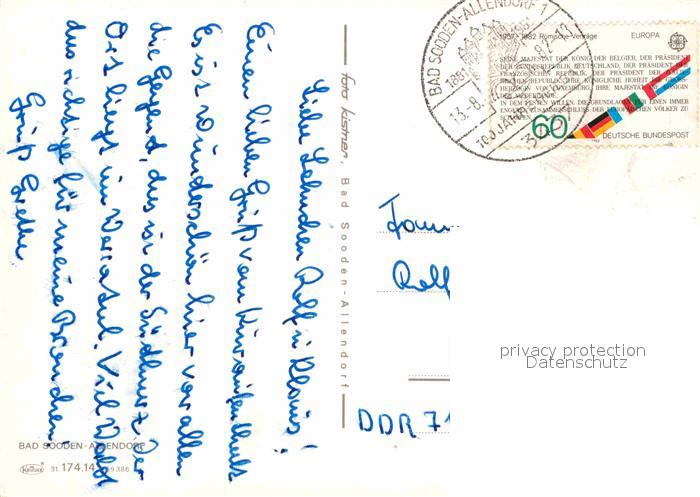 Liebe Lehnchen Rolf u Klaus!
Einen lieben Gruß vom Kuraufenthalt
Es ist wunderschön hier vor allem
die Gegend, das ist der Südharz. Der
Ort liegt im Werratal. Viel Wald
das richtige für meine Bronchien!
Gruß Grethe
foto kistner, Bad Sooden-Allendorf
BAD SOODEN-ALLENDORF
Krüger 31. 174.14 9386
BAD SOODEN-ALLENDORF 1
13.-8.
1881
100 JA
1957-1982 Römische Verträge EUROPA
SEINE MAJESTÄT DER KÖNIG DER BELGIER, DER PRÄSIDENT
DER BUNDESREPUBLIK DEUTSCHLAND, DER PRÄSIDENT DER
FRANZÖSISCHEN REPUBLIK, DER PRÄSIDENT DER ITALIE-
NISCHEN REPUBLIK, IHRE KÖNIGLICHE HOHEIT DIE GROSS-
HERZOGIN VON LUXEMBURG, IHRE MAJESTÄT DIE KÖNIGIN
DER NIEDERLANDE,
IN DEM FESTEN WILLEN, DIE GRUNDLAGEN FÜR EINEN IMMER
ENGEREN ZUSAMMENSCHLUSS DER EUROPÄISCHEN VÖLKER ZU
SCHAFFEN
60
DEUTSCHE BUNDESPOST
Fam
Rolf
DDR 71
privacy protection
Datenschutz